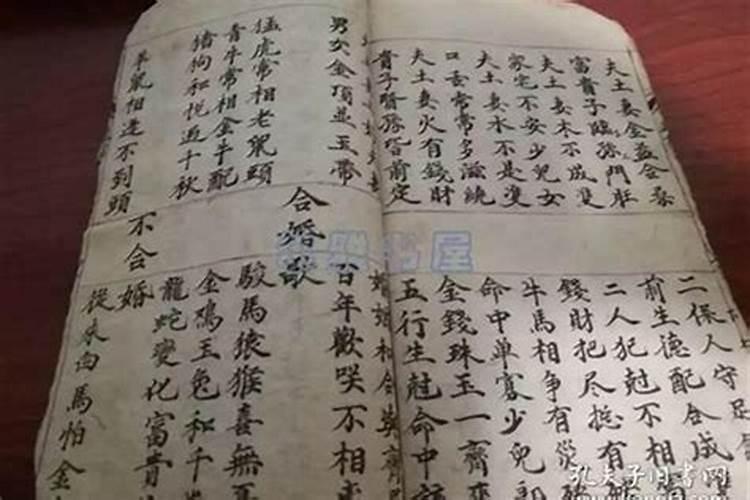 夫土妻金益合
富貴子臨孫門旺
夫土妻木不成雙
家宅不安少兒女
夫土妻水不是雙
口舌常常多滋繞
夫土妻火有錢財
貴子賢孫皆前定
二保人守足
前生德配合成
二人犯尅不相
錢財把尽總有
牛馬相争有災
命中单寡少兒郎
金錢珠玉一齊來
五行生尅命中
婚姻和合
男女金項並玉帶
百年歡咲不相
合婚歌
猛虎常相老鼠頭
駿馬猿猴喜無
青牛常相金牛配
金鸡玉兔和千
猪狗和悦过千秋
龍蛇變化富貴
羊鼠相逢不到頭
不合婚
從来白馬怕金
孔夫子旧書网